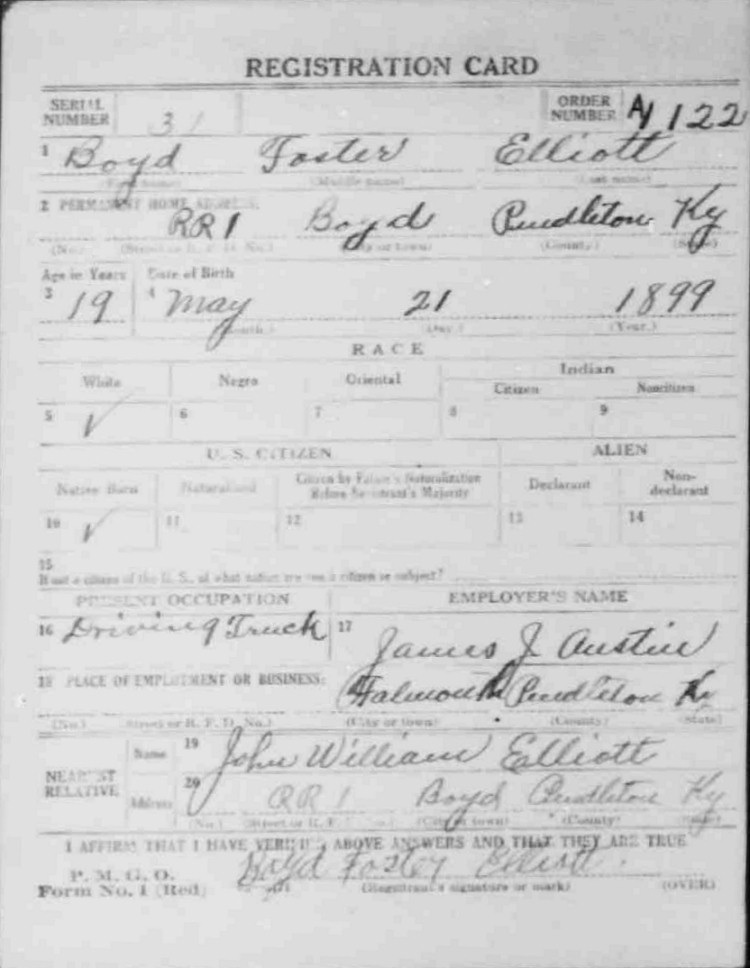 REGISTRATION CARD
SERIAL NUMBER 31 ORDER NUMBER A1122
1 Boyd Foster Elliott
(First name) (Middle name) (Last name)
2 PERMANENT HOME ADDRESS:
RR1 Boyd Pendleton Ky
(No.) (Street or R. F. D. No.) (City or town) (County) (State)
Age in Years Date of Birth
3 19 4 May 21 1899
(Month.) (Day.) (Year.)
RACE
White Negro Oriental Indian
Citizen Noncitizen
5 ✓ 6 7 8 9
U. S. CITIZEN ALIEN
Native Born Naturalized Citizen by Father's Naturalization Before Registrant's Majority Declarant Non-declarant
10 ✓ 11 12 13 14
15
If not a citizen of the U. S., of what nation are you a citizen or subject?
PRESENT OCCUPATION EMPLOYER'S NAME
16 Driving Truck 17 James J Austin
18 PLACE OF EMPLOYMENT OR BUSINESS:
Falmouth Pendleton Ky
(No.) (Street or R. F. D. No.) (City or town) (County) (State)
NEAREST RELATIVE
Name 19 John William Elliott
Address 20 RR1 Boyd Pendleton Ky
(No.) (Street or R. F. D. No.) (City or town) (County) (State)
I AFFIRM THAT I HAVE VERIFIED ABOVE ANSWERS AND THAT THEY ARE TRUE
P. M. G. O.
Form No. 1 (Red) Boyd Foster Elliott.
(Registrant's signature or mark) (OVER)